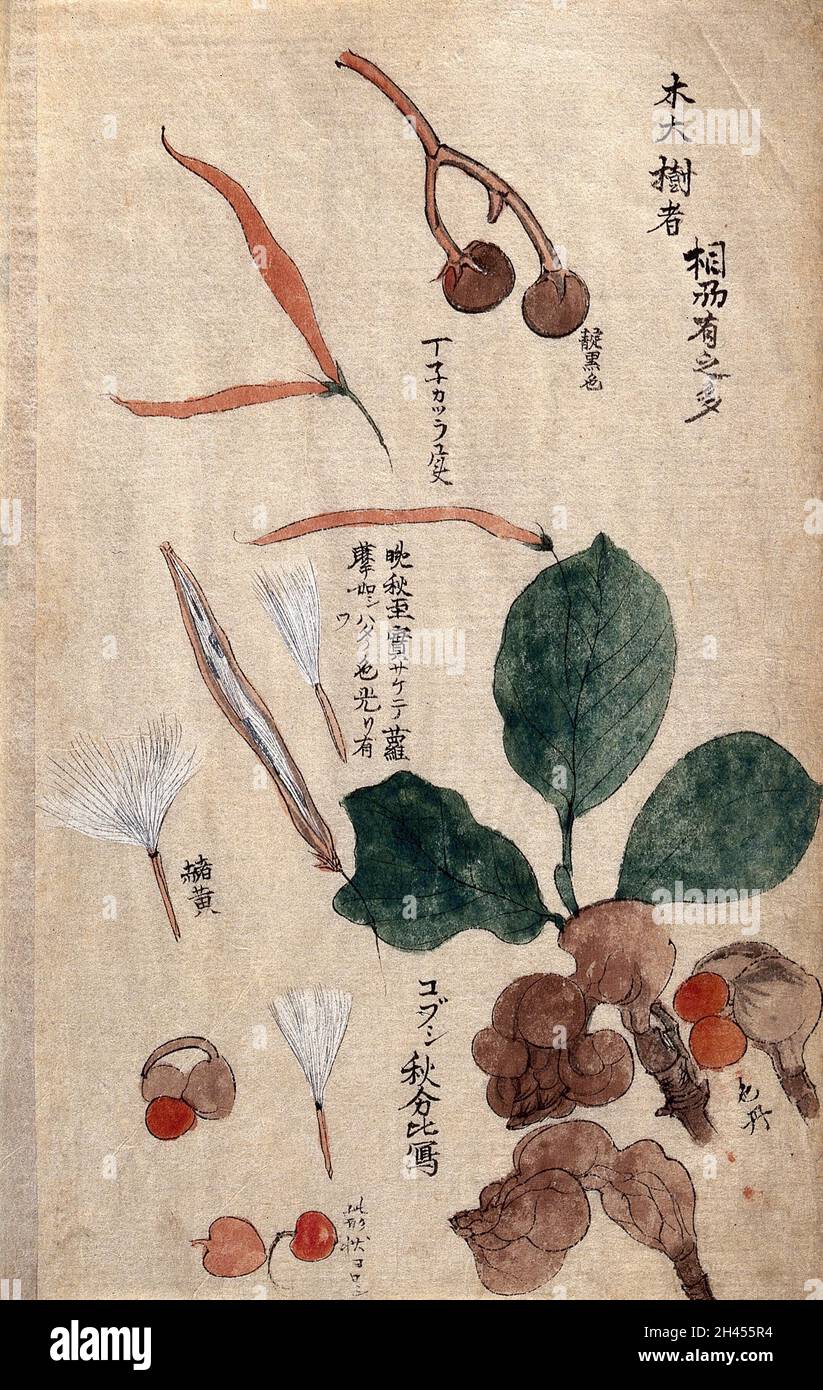 木大樹者
相刕有之多
靛黒色
丁子カツラ
晩秋至實サケニテ蘿
摩如シハタノ色光リ有
ワ
赭黄
コブシ秋分比寫
色丹
此形状
alamy
Image ID: 2H455R4
www.alamy.com